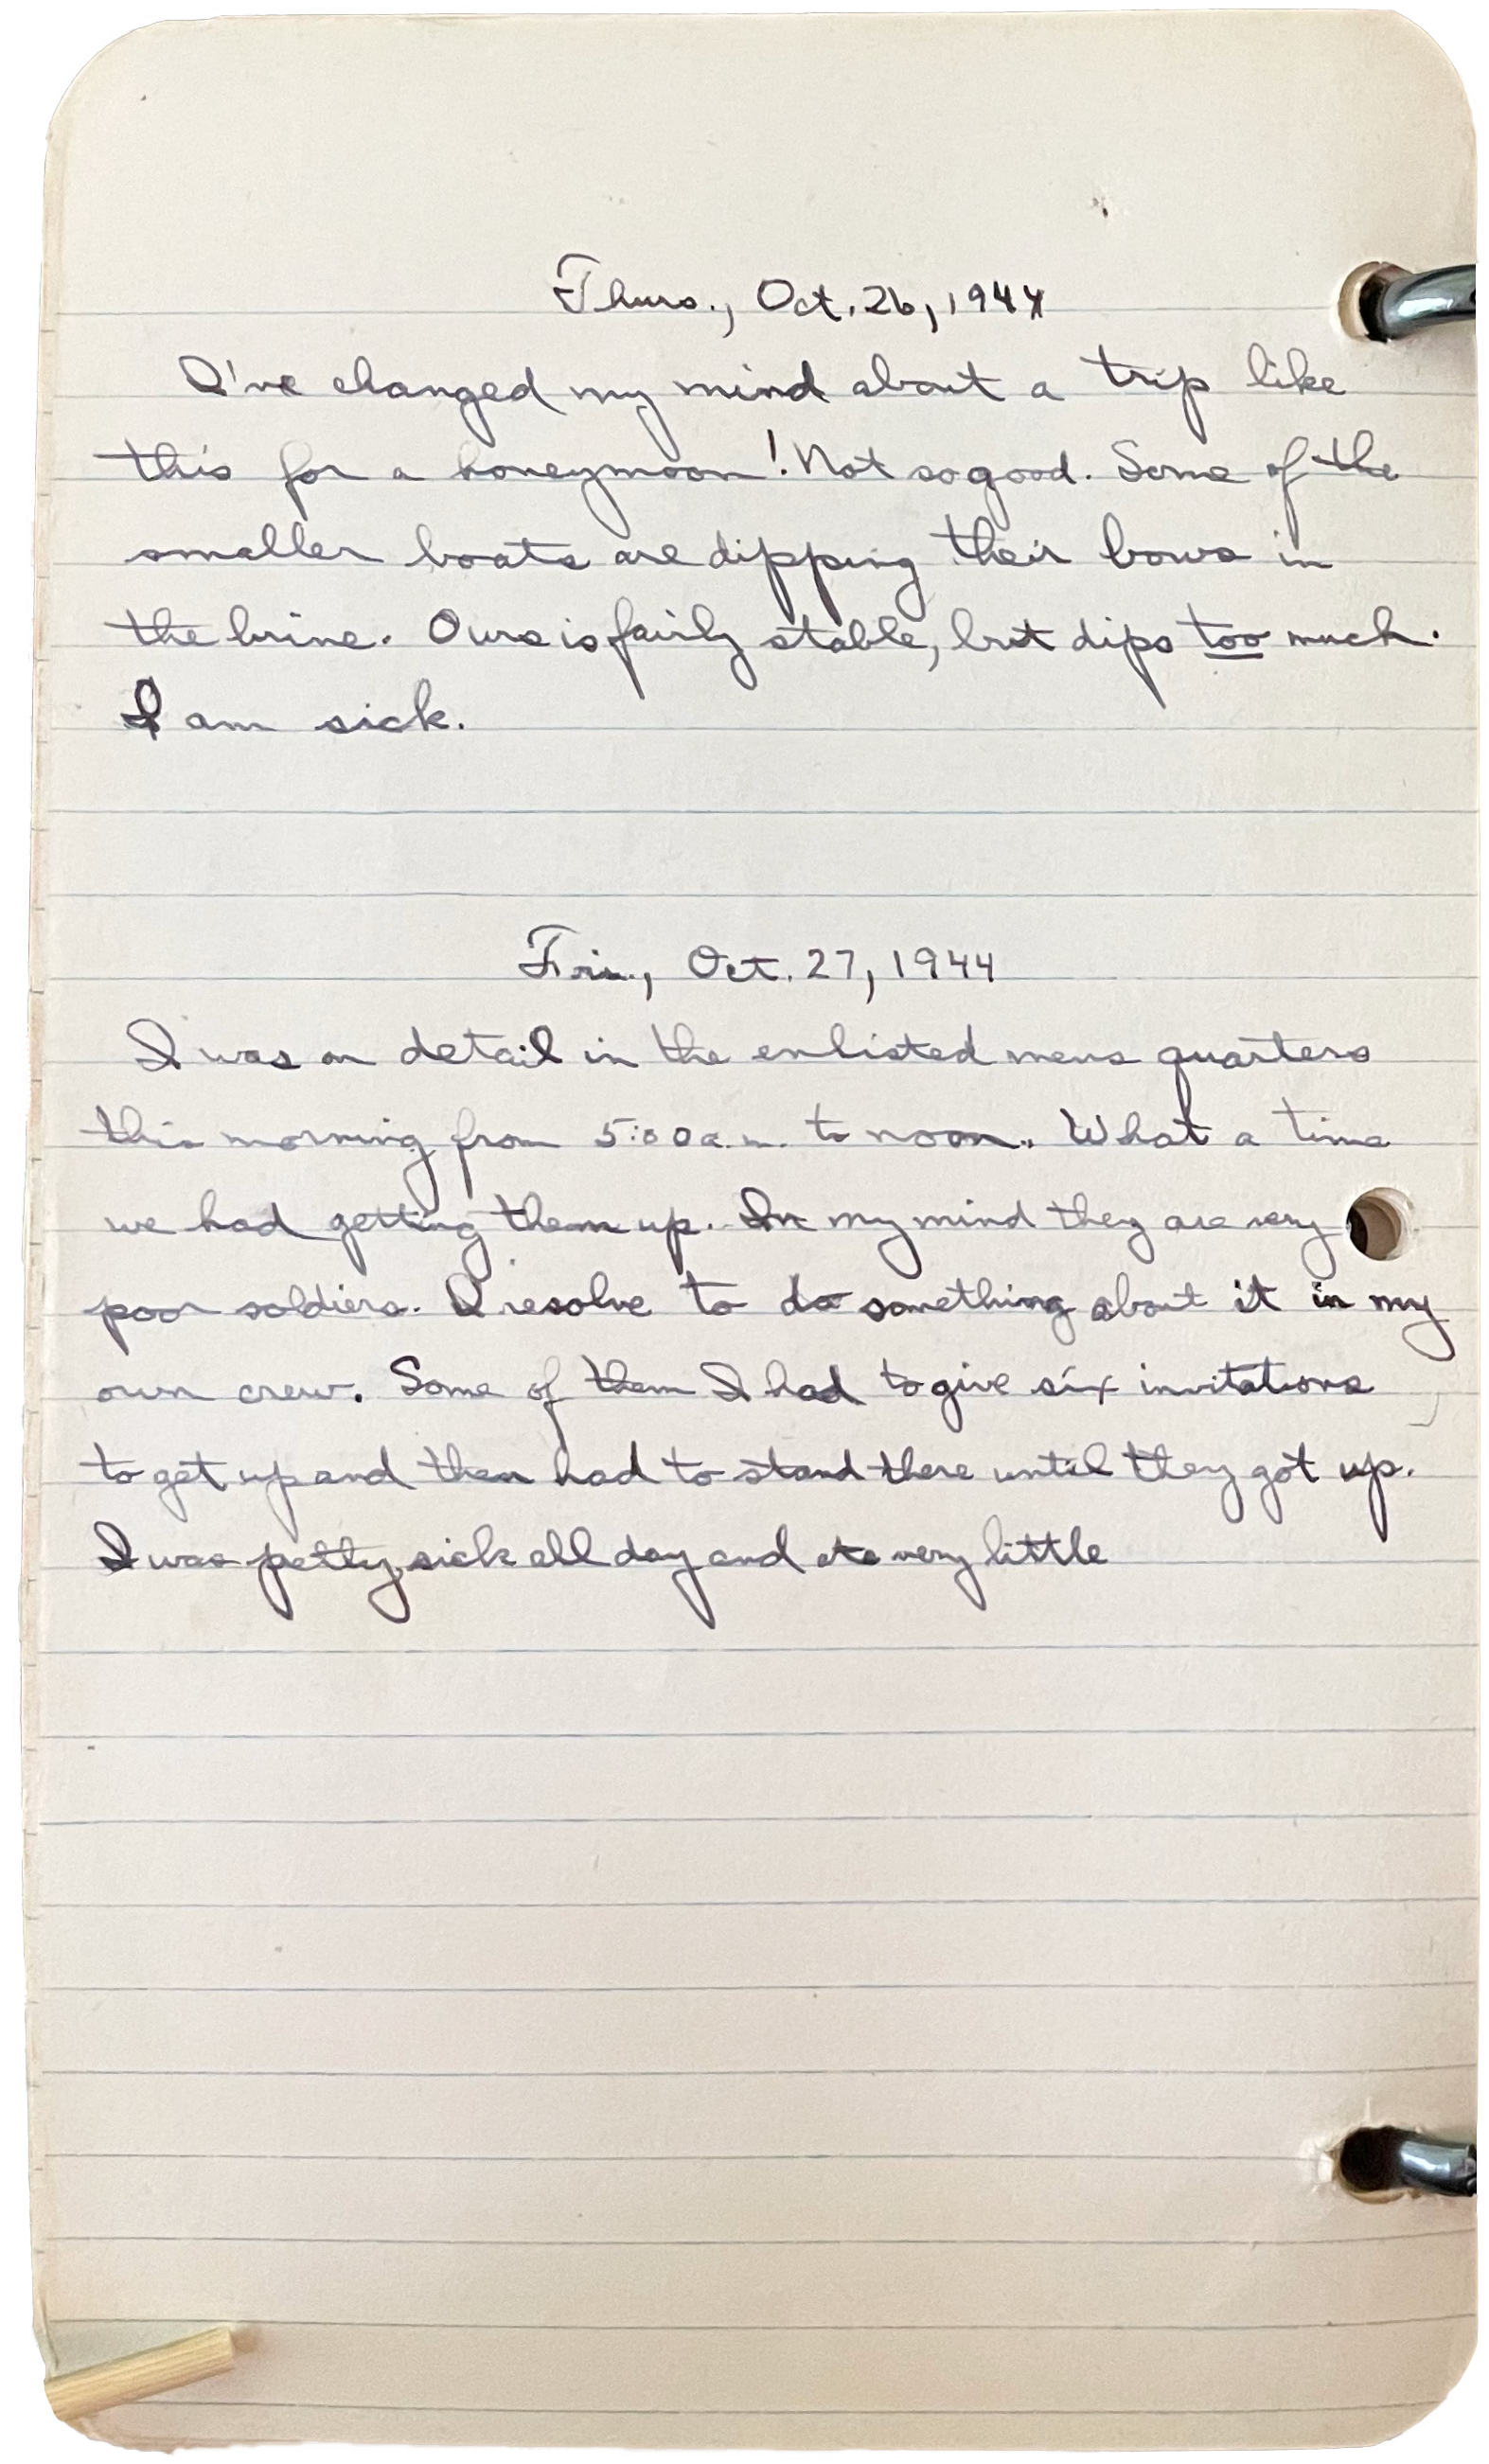 Thurs., Oct. 26, 1944
I've changed my mind about a trip like
this for a honeymoon! Not so good. Some of the
smaller boats are dipping their bows in
the brine. Ours is fairly stable, but dips too much.
I am sick.
Fri., Oct. 27, 1944
I was on detail in the enlisted mens quarters
this morning from 5:00 a.m. to noon. What a time
we had getting them up. In my mind they are very
poor soldiers. I resolve to do something about it in my
own crew. Some of them I had to give six invitations
to get up and then had to stand there until they got up.
I was petty sick all day and ate very little